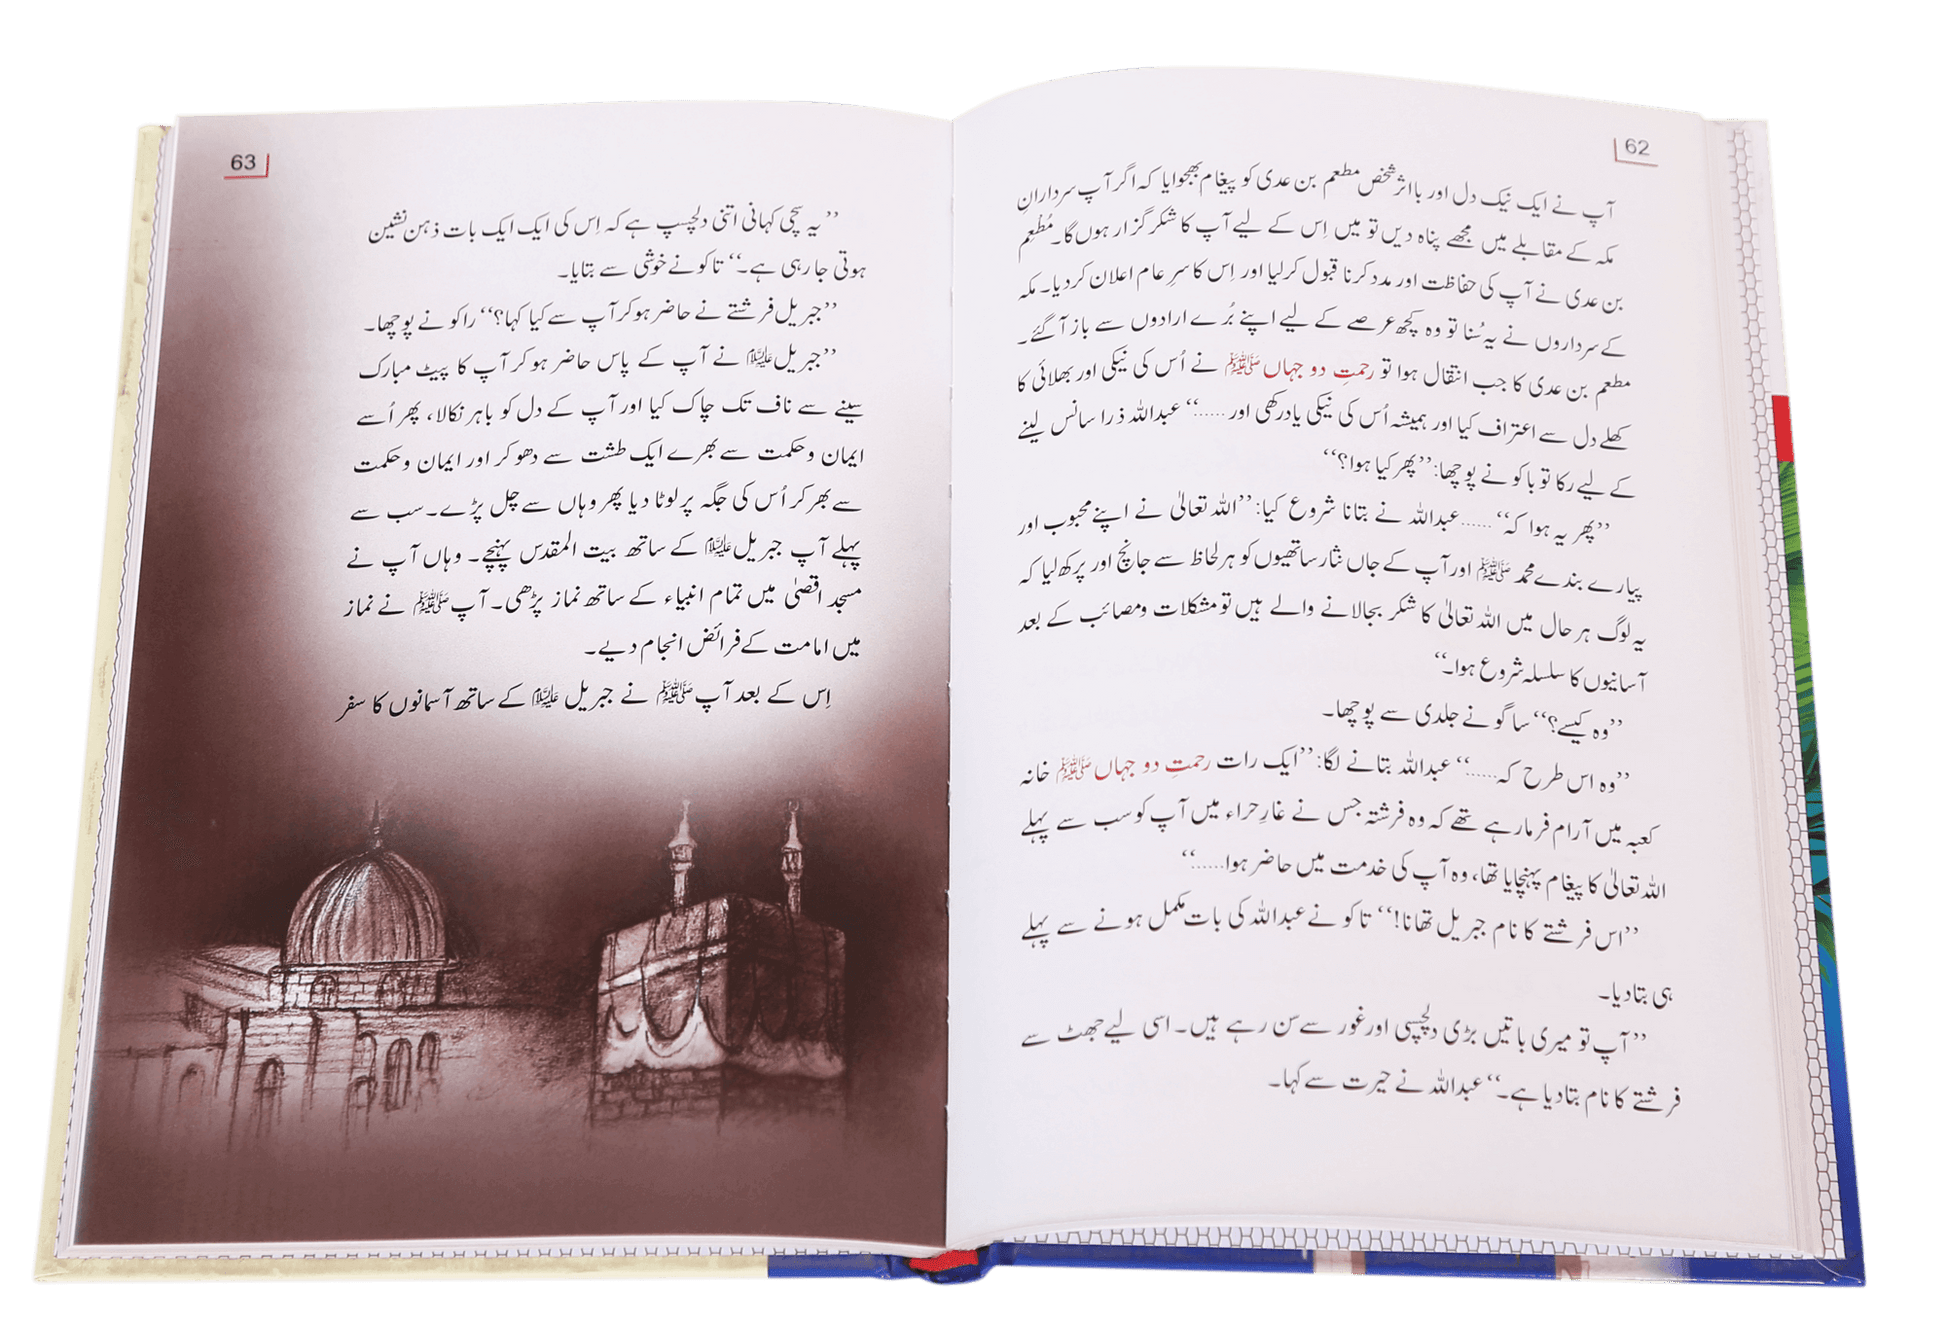 62
آپ نے ایک نیک دل اور بااثر شخص مطعم بن عدی کو پیغام بھجوایا کہ اگر آپ سردارانِ
مکہ کے مقابلے میں مجھے پناہ دیں تو میں اِس کے لیے آپ کا شکر گزار ہوں گا۔ مُطعِم
بن عدی نے آپ کی حفاظت اور مدد کرنا قبول کرلیا اور اِس کا سرِ عام اعلان کردیا۔ مکہ
کے سرداروں نے یہ سُنا تو وہ کچھ عرصے کے لیے اپنے بُرے ارادوں سے باز آگئے۔
مطعم بن عدی کا جب انتقال ہوا تو رحمتِ دو جہاں ﷺ نے اُس کی نیکی اور بھلائی کا
کھلے دل سے اعتراف کیا اور ہمیشہ اُس کی نیکی یاد رکھی اور ......‘‘ عبداللہ ذرا سانس لینے
کے لیے رکا تو باکو نے پوچھا: ’’پھر کیا ہوا؟‘‘
’’پھر یہ ہوا کہ‘‘ ...... عبداللہ نے بتانا شروع کیا: ’’اللہ تعالیٰ نے اپنے محبوب اور
پیارے بندے محمد ﷺ اور آپ کے جاں نثار ساتھیوں کو ہر لحاظ سے جانچ اور پرکھ لیا کہ
یہ لوگ ہر حال میں اللہ تعالیٰ کا شکر بجالانے والے ہیں تو مشکلات ومصائب کے بعد
آسانیوں کا سلسلہ شروع ہوا۔‘‘
’’وہ کیسے؟‘‘ ساگو نے جلدی سے پوچھا۔
’’وہ اس طرح کہ.....‘‘ عبداللہ بتانے لگا: ’’ایک رات رحمتِ دو جہاں ﷺ خانہ
کعبہ میں آرام فرمارہے تھے کہ وہ فرشتہ جس نے غارِ حراء میں آپ کو سب سے پہلے
اللہ تعالیٰ کا پیغام پہنچایا تھا، وہ آپ کی خدمت میں حاضر ہوا.....‘‘
’’اس فرشتے کا نام جبریل تھا نا!‘‘ تاکو نے عبداللہ کی بات مکمل ہونے سے پہلے
ہی بتادیا۔
’’آپ تو میری باتیں بڑی دلچسپی اور غور سے سن رہے ہیں۔ اسی لیے جھٹ سے
فرشتے کا نام بتادیا ہے۔‘‘ عبداللہ نے حیرت سے کہا۔
63
’’یہ سچی کہانی اتنی دلچسپ ہے کہ اِس کی ایک ایک بات ذہن نشین
ہوتی جا رہی ہے۔‘‘ تاکو نے خوشی سے بتایا۔
’’جبریل فرشتے نے حاضر ہوکر آپ سے کیا کہا؟‘‘ راکو نے پوچھا۔
’’جبریل علیہ السلام نے آپ کے پاس حاضر ہو کر آپ کا پیٹ مبارک
سینے سے ناف تک چاک کیا اور آپ کے دل کو باہر نکالا، پھر اُسے
ایمان وحکمت سے بھرے ایک طشت سے دھو کر اور ایمان وحکمت
سے بھر کر اُس کی جگہ پر لوٹا دیا پھر وہاں سے چل پڑے۔ سب سے
پہلے آپ جبریل علیہ السلام کے ساتھ بیت المقدس پہنچے۔ وہاں آپ نے
مسجد اقصیٰ میں تمام انبیاء کے ساتھ نماز پڑھی۔ آپ ﷺ نے نماز
میں امامت کے فرائض انجام دیے۔
اِس کے بعد آپ ﷺ نے جبریل علیہ السلام کے ساتھ آسمانوں کا سفر